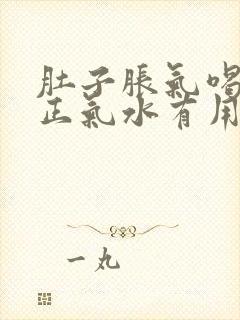 肚子脹氣喝
正氣水有用
一丸